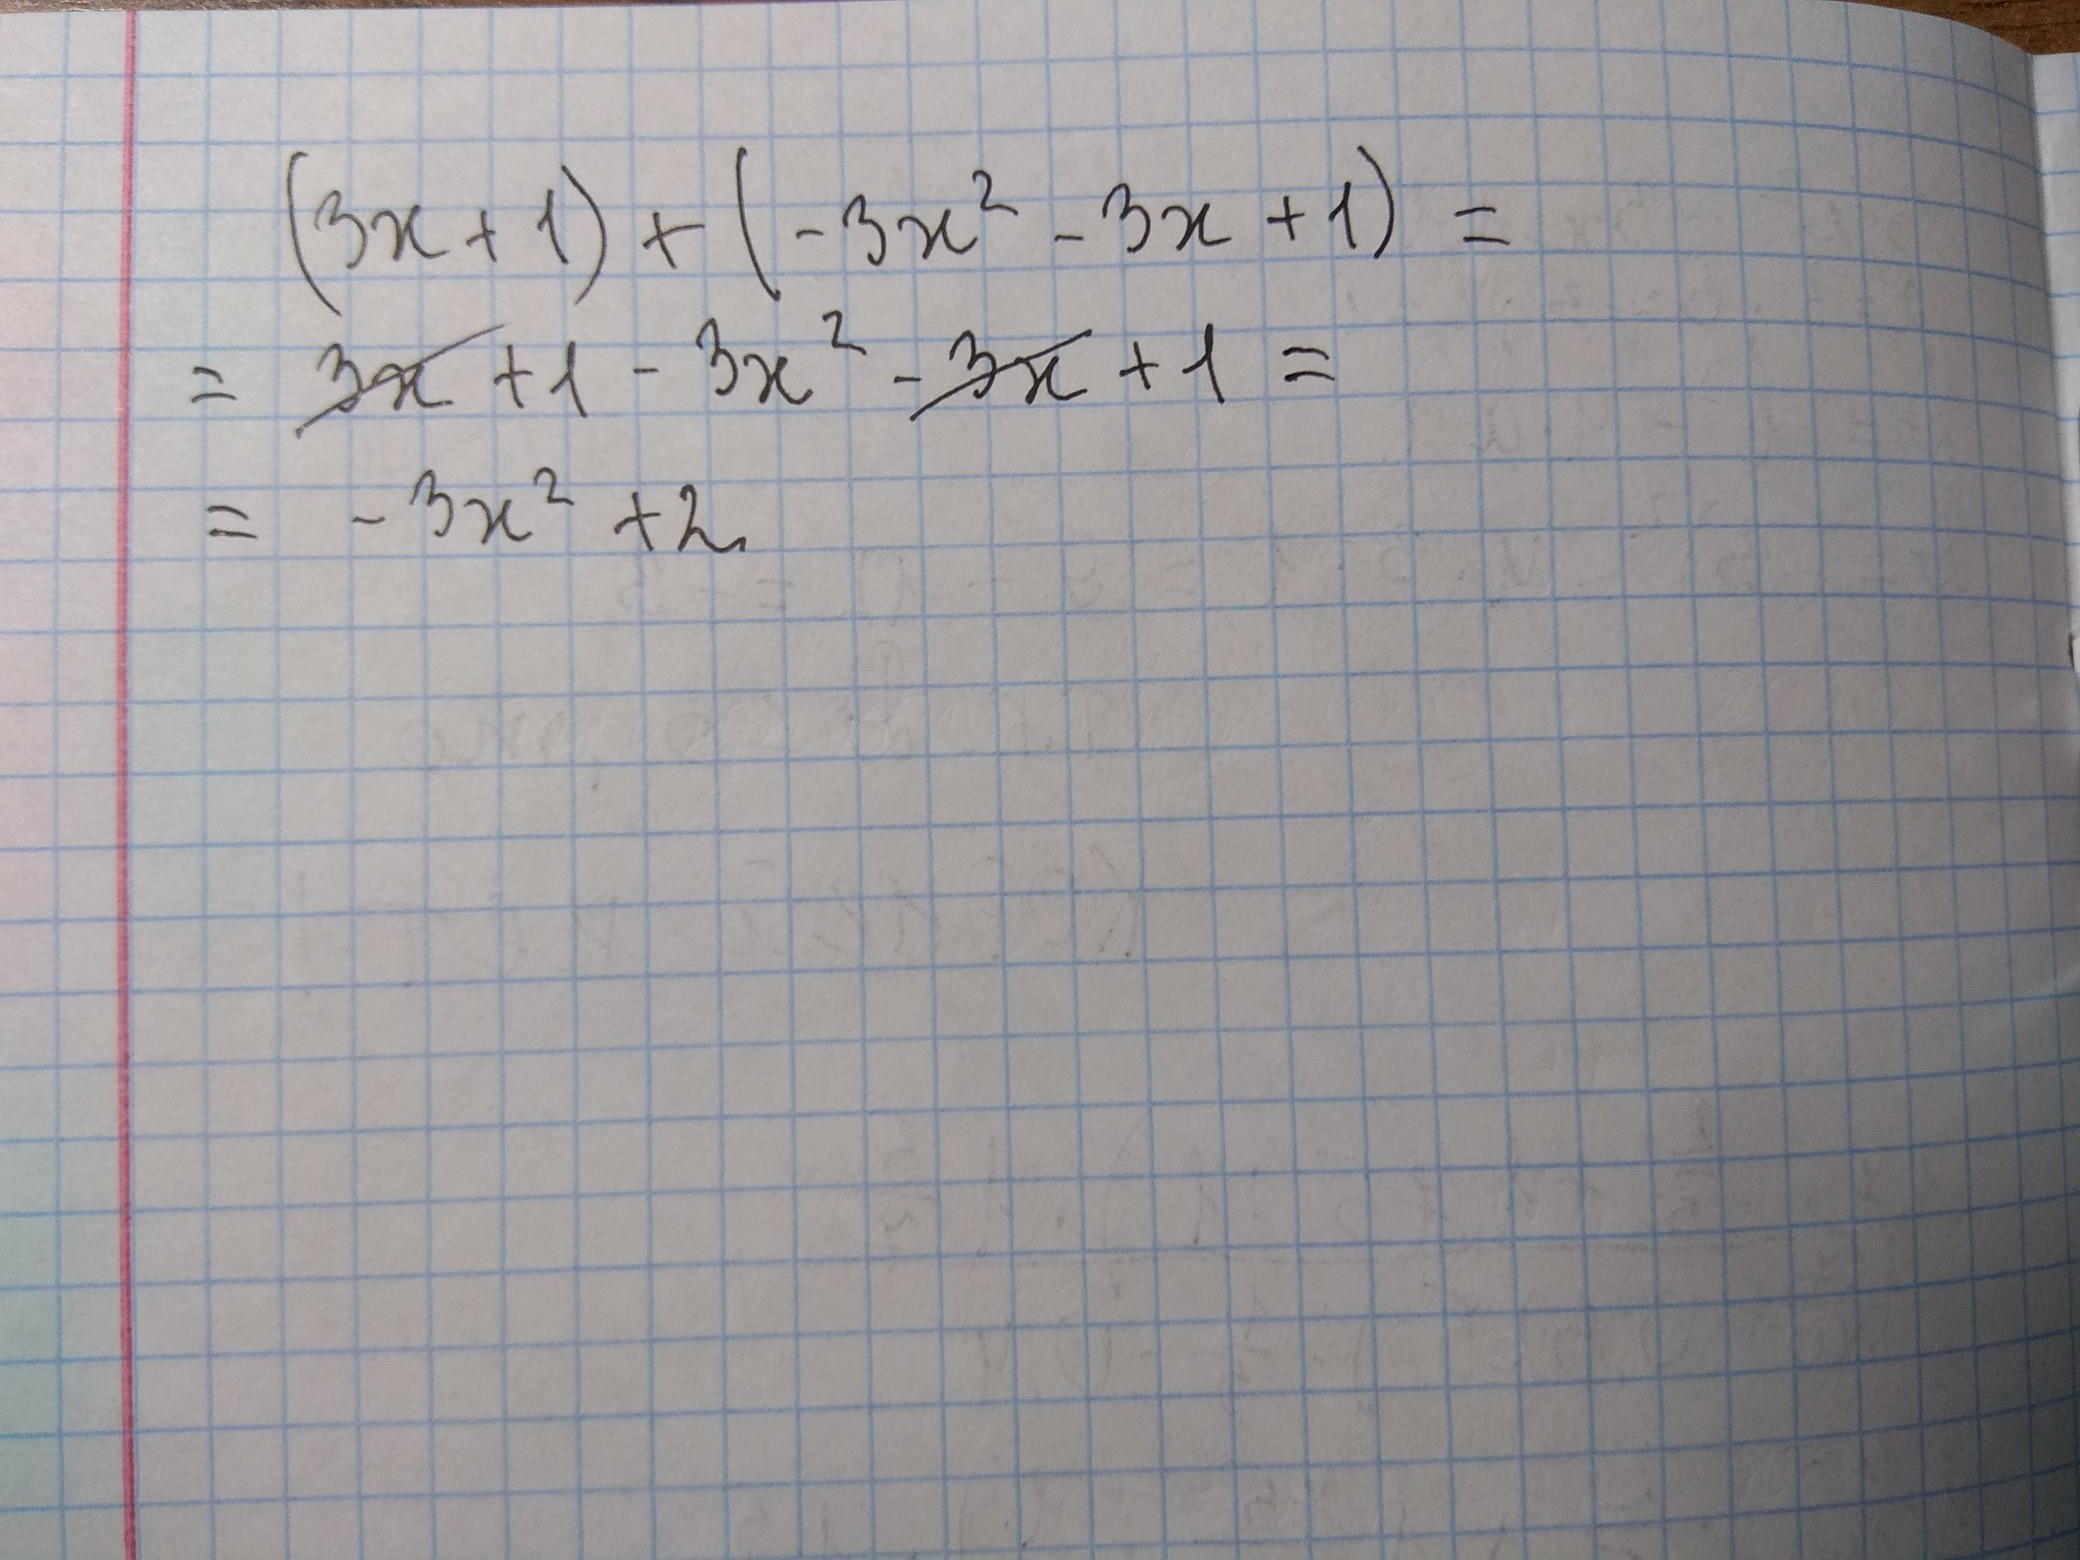 (3x + 1) + (-3x² - 3x + 1) =
= 3x + 1 - 3x² - 3x + 1 =
= -3x² + 2